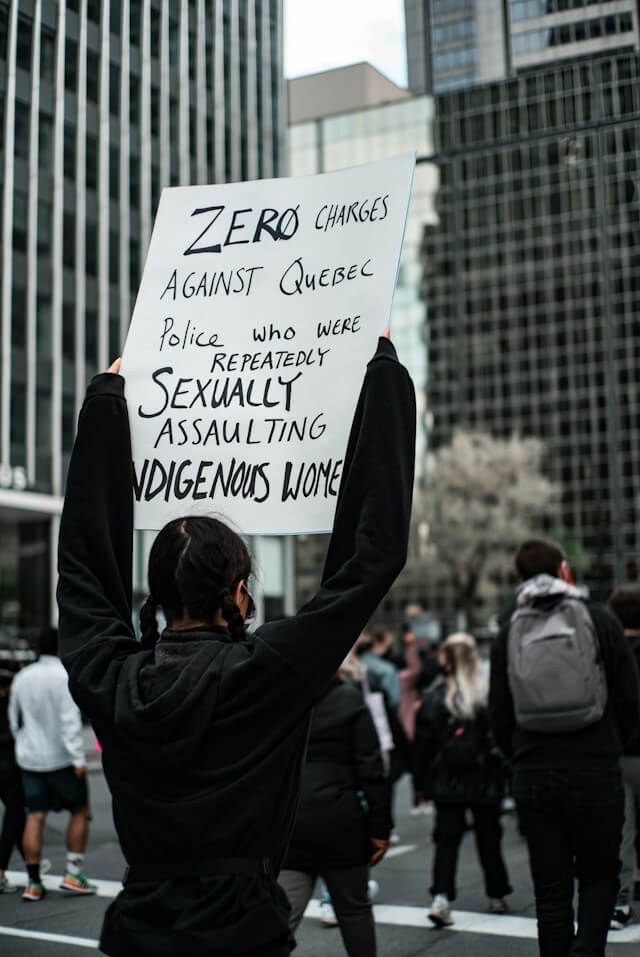 ZERO CHARGES
AGAINST QUEBEC
Police who WERE
REPEATEDLY
SEXUALLY
ASSAULTING
NDIGENOUS WOME
05